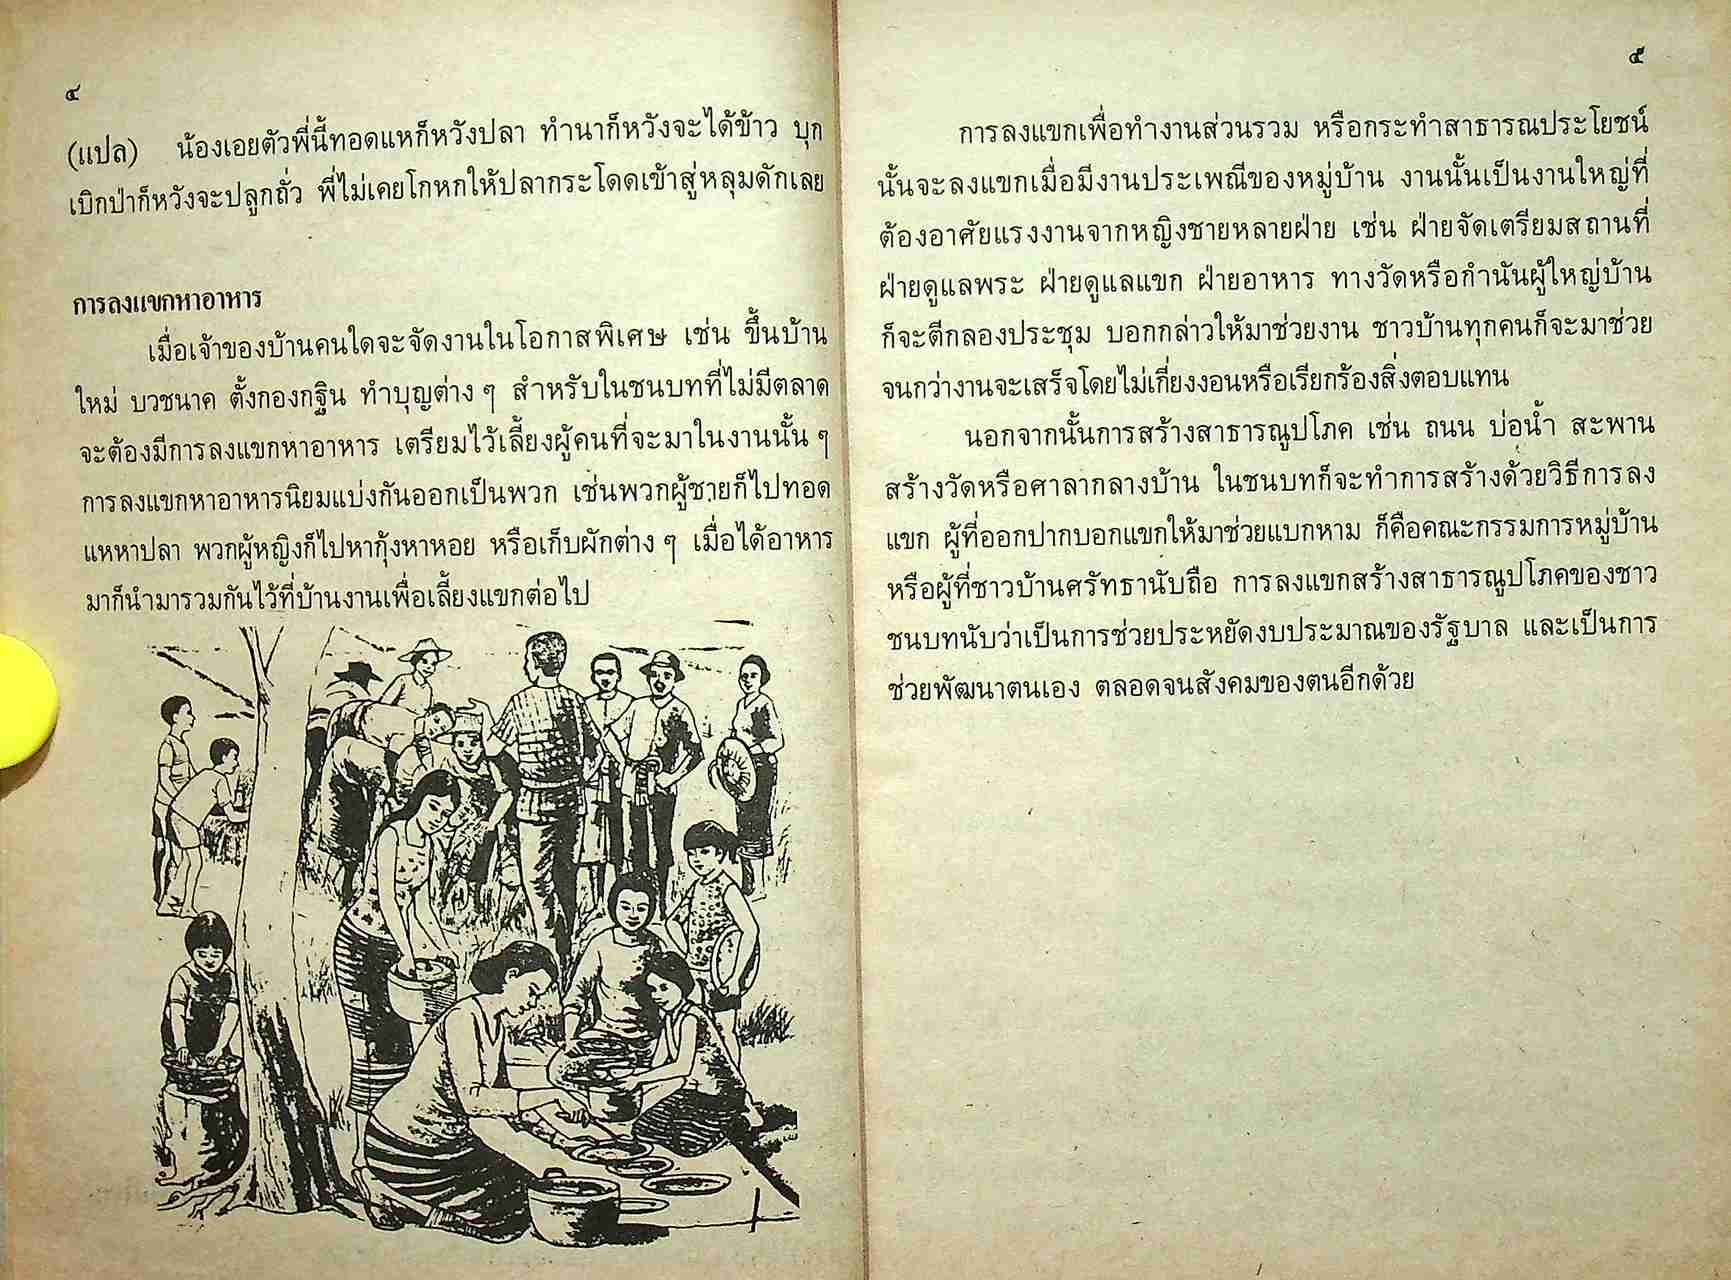 ๔
(แปล) น้องเอยตัวพี่นี้ทอดแหก็หวังปลา ทำนาก็หวังจะได้ข้าว บุก
เบิกป่าก็หวังจะปลูกถั่ว พี่ไม่เคยโกหกให้ปลากระโดดเข้าสู่หลุมดักเลย
การลงแขกหาอาหาร
เมื่อเจ้าของบ้านคนใดจะจัดงานในโอกาสพิเศษ เช่น ขึ้นบ้าน
ใหม่ บวชนาค ตั้งกองกฐิน ทำบุญต่าง ๆ สำหรับในชนบทที่ไม่มีตลาด
จะต้องมีการลงแขกหาอาหาร เตรียมไว้เลี้ยงผู้คนที่จะมาในงานนั้น ๆ
การลงแขกหาอาหารนิยมแบ่งกันออกเป็นพวก เช่นพวกผู้ชายก็ไปทอด
แหหาปลา พวกผู้หญิงก็ไปหากุ้งหาหอย หรือเก็บผักต่าง ๆ เมื่อได้อาหาร
มาก็นำมารวมกันไว้ที่บ้านงานเพื่อเลี้ยงแขกต่อไป
๕
การลงแขกเพื่อทำงานส่วนรวม หรือกระทำสาธารณประโยชน์
นั้นจะลงแขกเมื่อมีงานประเพณีของหมู่บ้าน งานนั้นเป็นงานใหญ่ที่
ต้องอาศัยแรงงานจากหญิงชายหลายฝ่าย เช่น ฝ่ายจัดเตรียมสถานที่
ฝ่ายดูแลพระ ฝ่ายดูแลแขก ฝ่ายอาหาร ทางวัดหรือกำนันผู้ใหญ่บ้าน
ก็จะตีกลองประชุม บอกกล่าวให้มาช่วยงาน ชาวบ้านทุกคนก็จะมาช่วย
จนกว่างานจะเสร็จโดยไม่เกี่ยงงอนหรือเรียกร้องสิ่งตอบแทน
นอกจากนั้นการสร้างสาธารณูปโภค เช่น ถนน บ่อน้ำ สะพาน
สร้างวัดหรือศาลากลางบ้าน ในชนบทก็จะทำการสร้างด้วยวิธีการลง
แขก ผู้ที่ออกปากบอกแขกให้มาช่วยแบกหาม ก็คือคณะกรรมการหมู่บ้าน
หรือผู้ที่ชาวบ้านศรัทธานับถือ การลงแขกสร้างสาธารณูปโภคของชาว
ชนบทนับว่าเป็นการช่วยประหยัดงบประมาณของรัฐบาล และเป็นการ
ช่วยพัฒนาตนเอง ตลอดจนสังคมของตนอีกด้วย